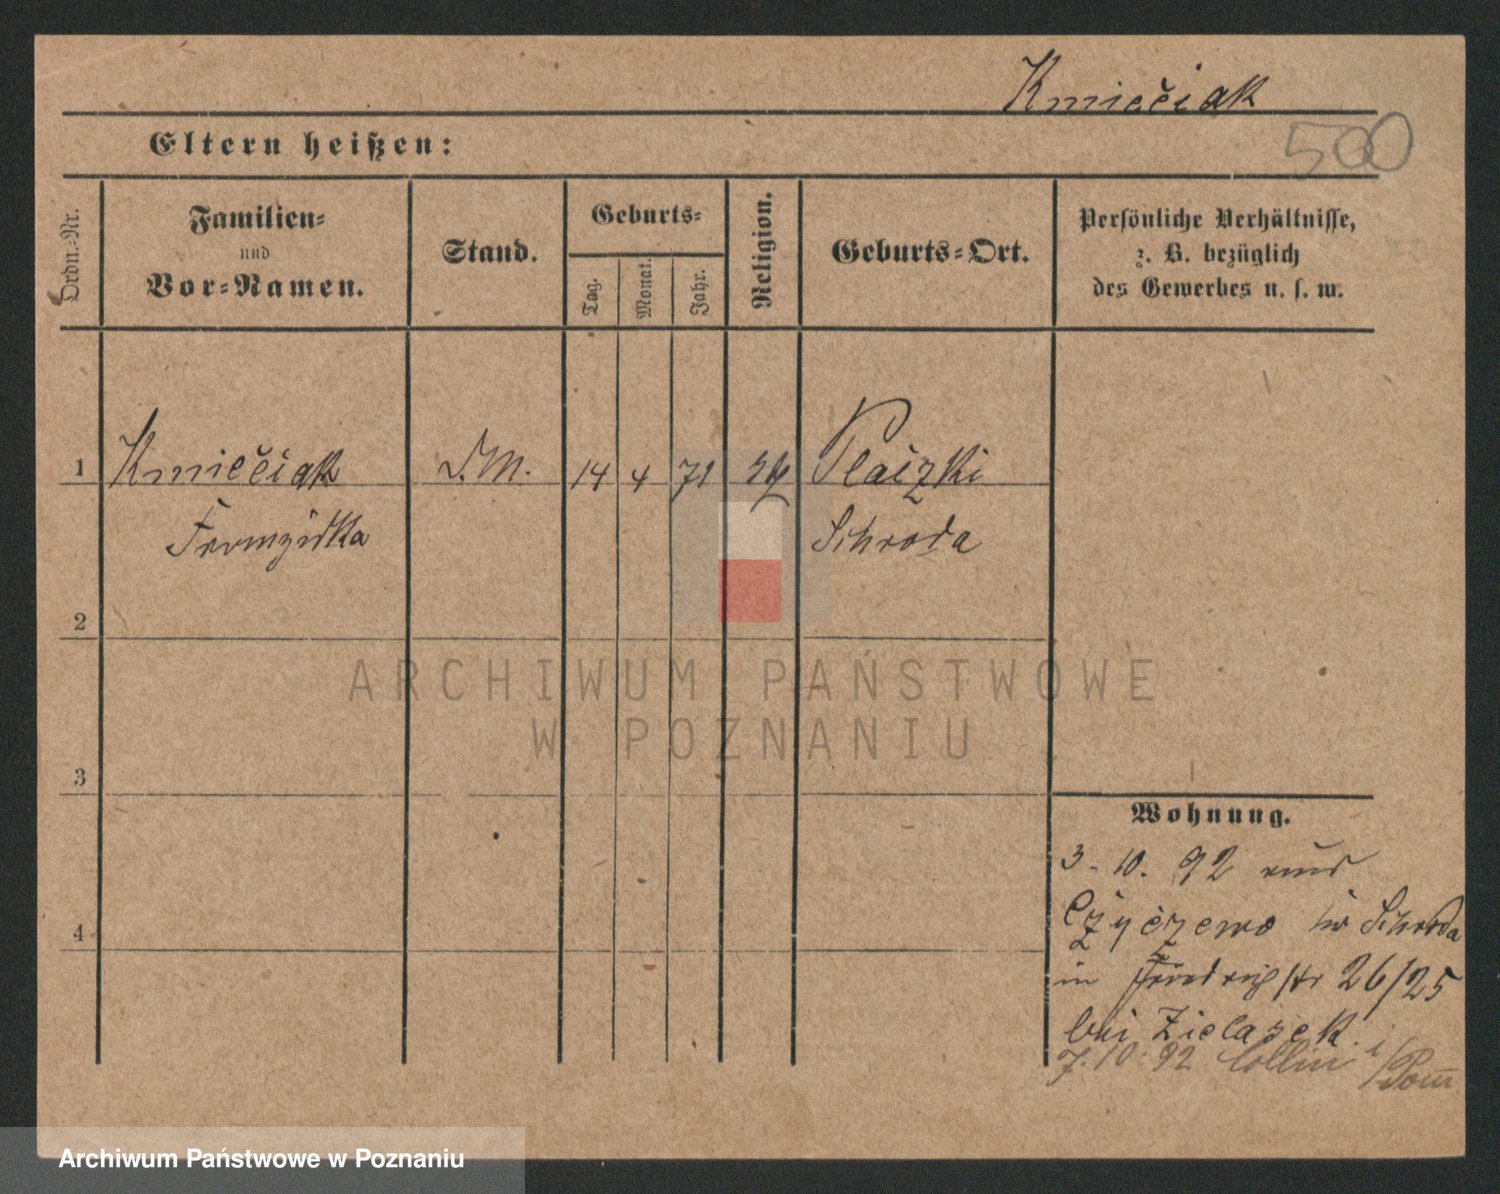 Kmiečiak
500
Eltern heißen:
Ordn.-Nr.
Familien-
und
Vor-Namen.
Stand.
Geburts-
Tag.
Monat.
Jahr.
Religion.
Geburts-Ort.
Persönliche Verhältnisse,
z. B. bezüglich
des Gewerbes u. s. w.
1
Kmiečiak
D.M.
14
4
71
Placzki
Schroda
2
3
4
ARCHIWUM PAŃSTWOWE
W POZNANIU
Wohnung.
3. 10. 92 aus
Czyczewo Kr Schroda
in Friedrichstr 26/25
bei Zielazek
7. 10. 92 Collin i/Pom
Archiwum Państwowe w Poznaniu